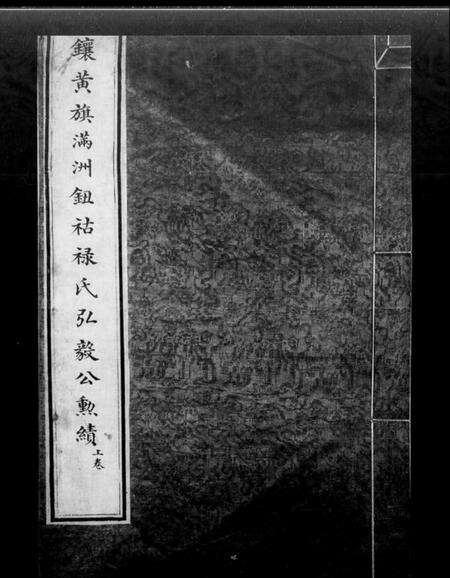 鑲黃旗滿洲鈕祜祿氏弘毅公勲績上卷